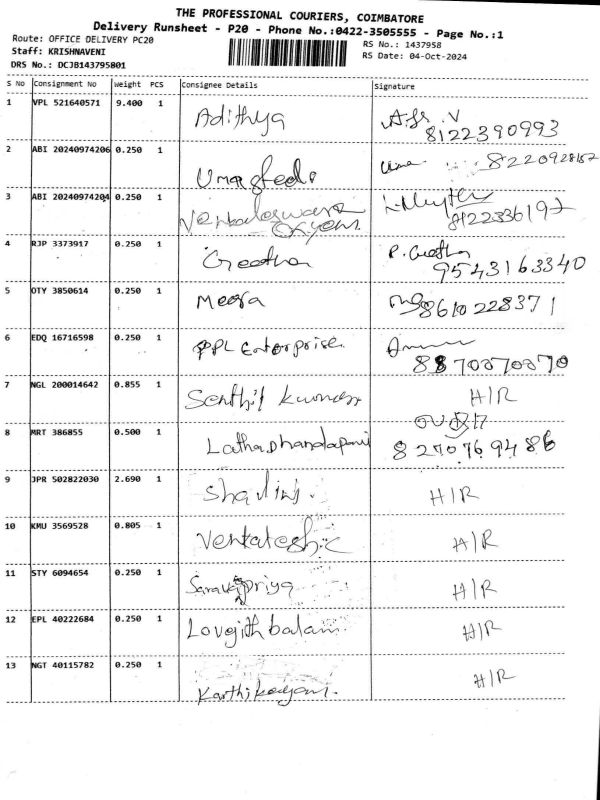 THE PROFESSIONAL COURIERS, COIMBATORE
Delivery Runsheet - P20 - Phone No.:0422-3505555 - Page No.:1
Route: OFFICE DELIVERY PC20
RS No.: 1437958
Staff: KRISHNAVENI
RS Date: 04-Oct-2024
DRS No.: DCJB143795801
S No Consignment No Weight PCS Consignee Details Signature
1 VPL 521640571 9.400 1 Adithya
8122390993
2 ABI 20240974206 0.250 1 Umar 8220928152
3 ABI 20240974204 0.250 1 Venkadeswara
8122336197
4 RJP 3373917 0.250 1 Geetha P. Geetha
9543163340
5 OTY 3850614 0.250 1 Meera 8610228371
6 EDQ 16716598 0.250 1 PPL Enterprise
8870070070
7 NGL 200014642 0.855 1 Senthil kumar H/R
8 MRT 386855 0.500 1 Lathadhandapani 8270769486
9 JPR 502822030 2.690 1 Shalini. H/R
10 KMU 3569528 0.805 1 Venkatesh.c H/R
11 STY 6094654 0.250 1 H/R
12 EPL 40222684 0.250 1 Lovejith balan H/R
13 NGT 40115782 0.250 1 Karthikeyan. H/R